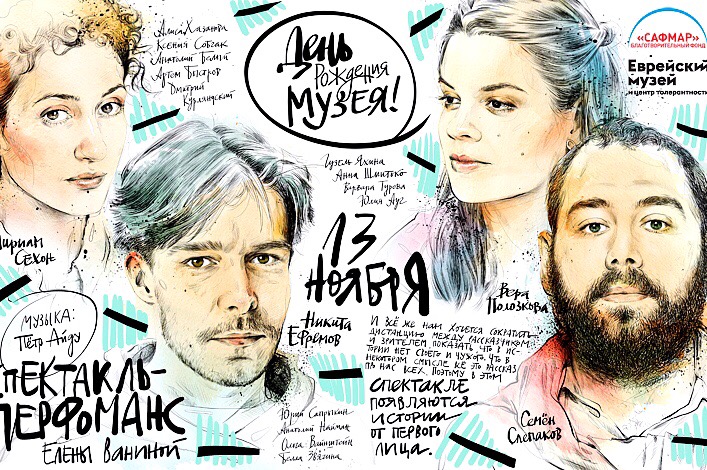 Алиса Хазанова
Ксения Собчак
Анатолий Белый
Артём Быстров
Дмитрий
Курляндский
День
рождения
музея!
«САФМАР»
БЛАГОТВОРИТЕЛЬНЫЙ ФОНД
Еврейский
музей
и центр толерантности
Гузель Яхина
Анна Шмитько
Варвара Турова
Юлия Ауг
13
ноября
Мириам
Сехон
Никита
Ефремов
Вера
Полозкова
Музыка:
Пётр Айду
Спектакль-
перфоманс
Елены Ваниной
И всё же нам хочется сократить
дистанцию между рассказчиком
и зрителем, показать, что в ис-
тории нет своего и чужого, что в
некотором смысле всё это рассказ
про нас всех. Поэтому в этом
спектакле
появляются
истории
от первого
лица.
Юрий Сапрыкин
Анатолий Найман
Семён
Слепаков